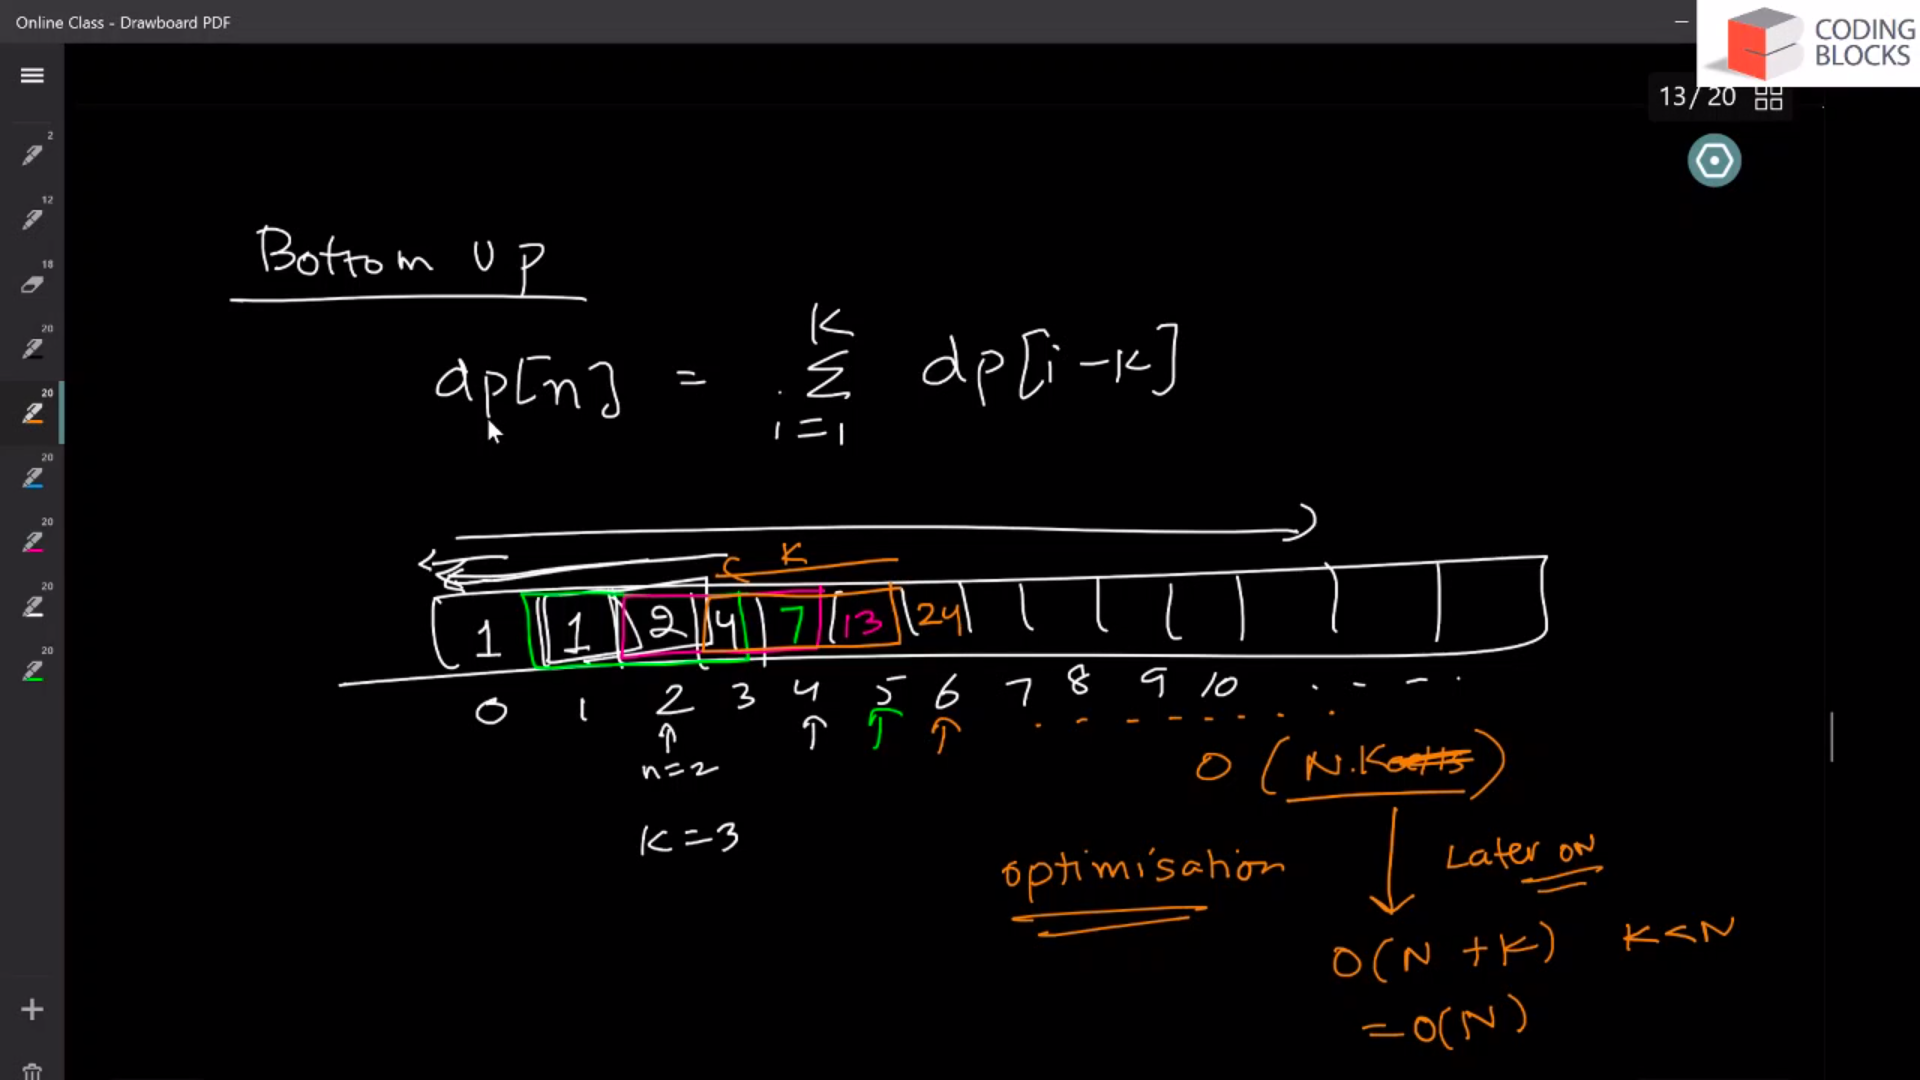 Online Class - Drawboard PDF
CODING
BLOCKS
13/ 20
2
12
18
20
20
20
20
20
20
Bottom Up
K
dp[n] = Σ dp[i-k]
i=1
K
1 1 2 4 7 13 24
0 1 2 3 4 5 6 7 8 9 10 . - - .
n=2
O(N.K)
K=3
optimisation
Later ON
O(N + K) K<N
=O(N)